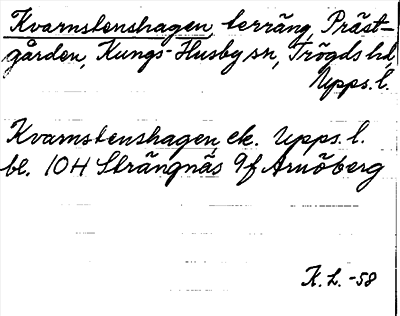 Kvarnstenshagen, terräng, Präst-
gården, Kungs-Husby sn, Trögds hd,
Upps. l.
Kvarnstenshagen ek. Upps. l.
bl. 10H Strängnäs 9f Arnöberg
K. L. -58